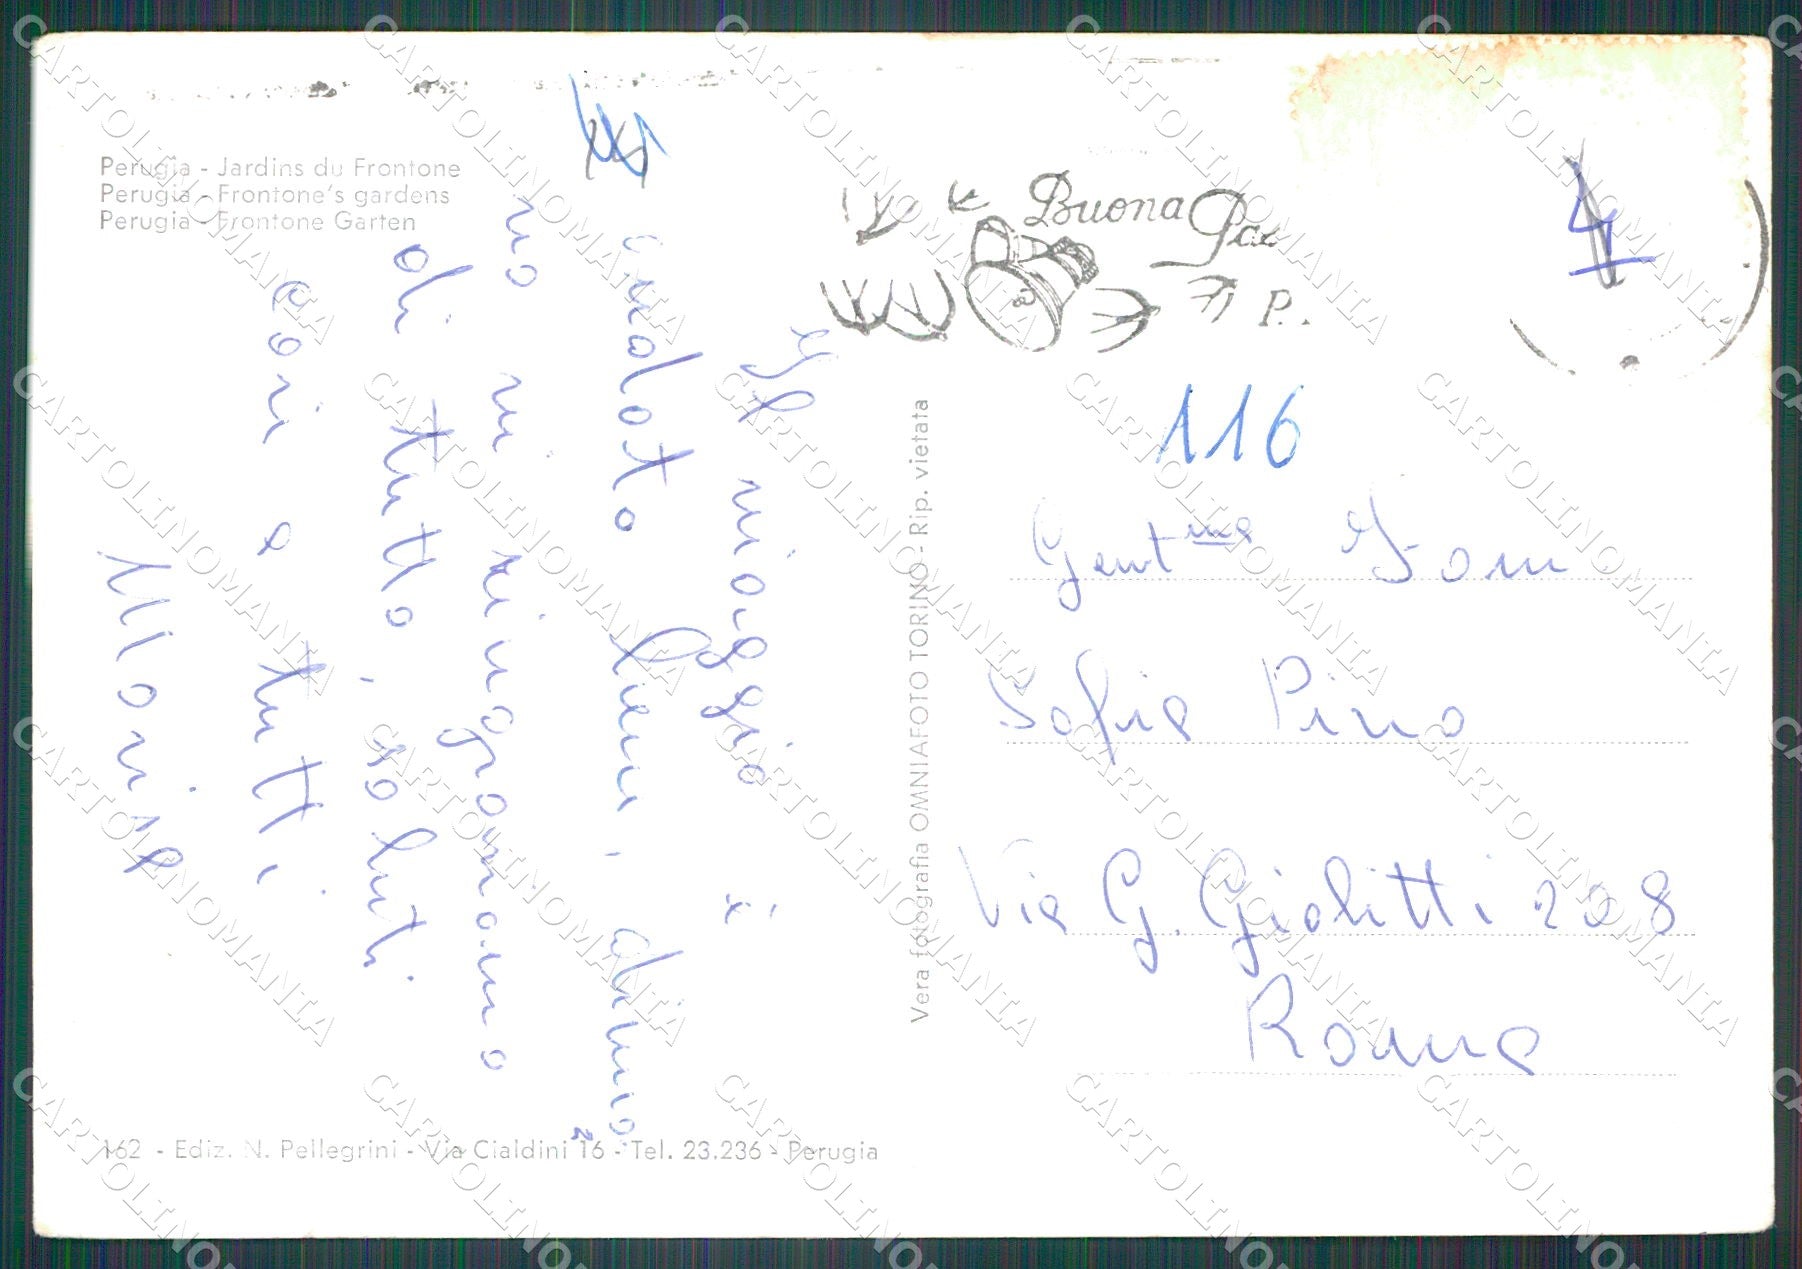 Perugia - Jardins du Frontone
Perugia - Frontone's gardens
Perugia - Frontone Garten
Il viaggio è
andato bene, almeno
no vi ringraziamo
di tutto, saluti
cari a tutti
Marisa
Vera fotografia OMNIAFOTO TORINO - Rip. vietata
Buona
P..
4
116
Gent.ma Fam
Sofia Pino
Via G. Giolitti 208
Roma
162 - Ediz. N. Pellegrini - Via Cialdini 16 - Tel. 23.236 - Perugia
CARTOLINOMANIA